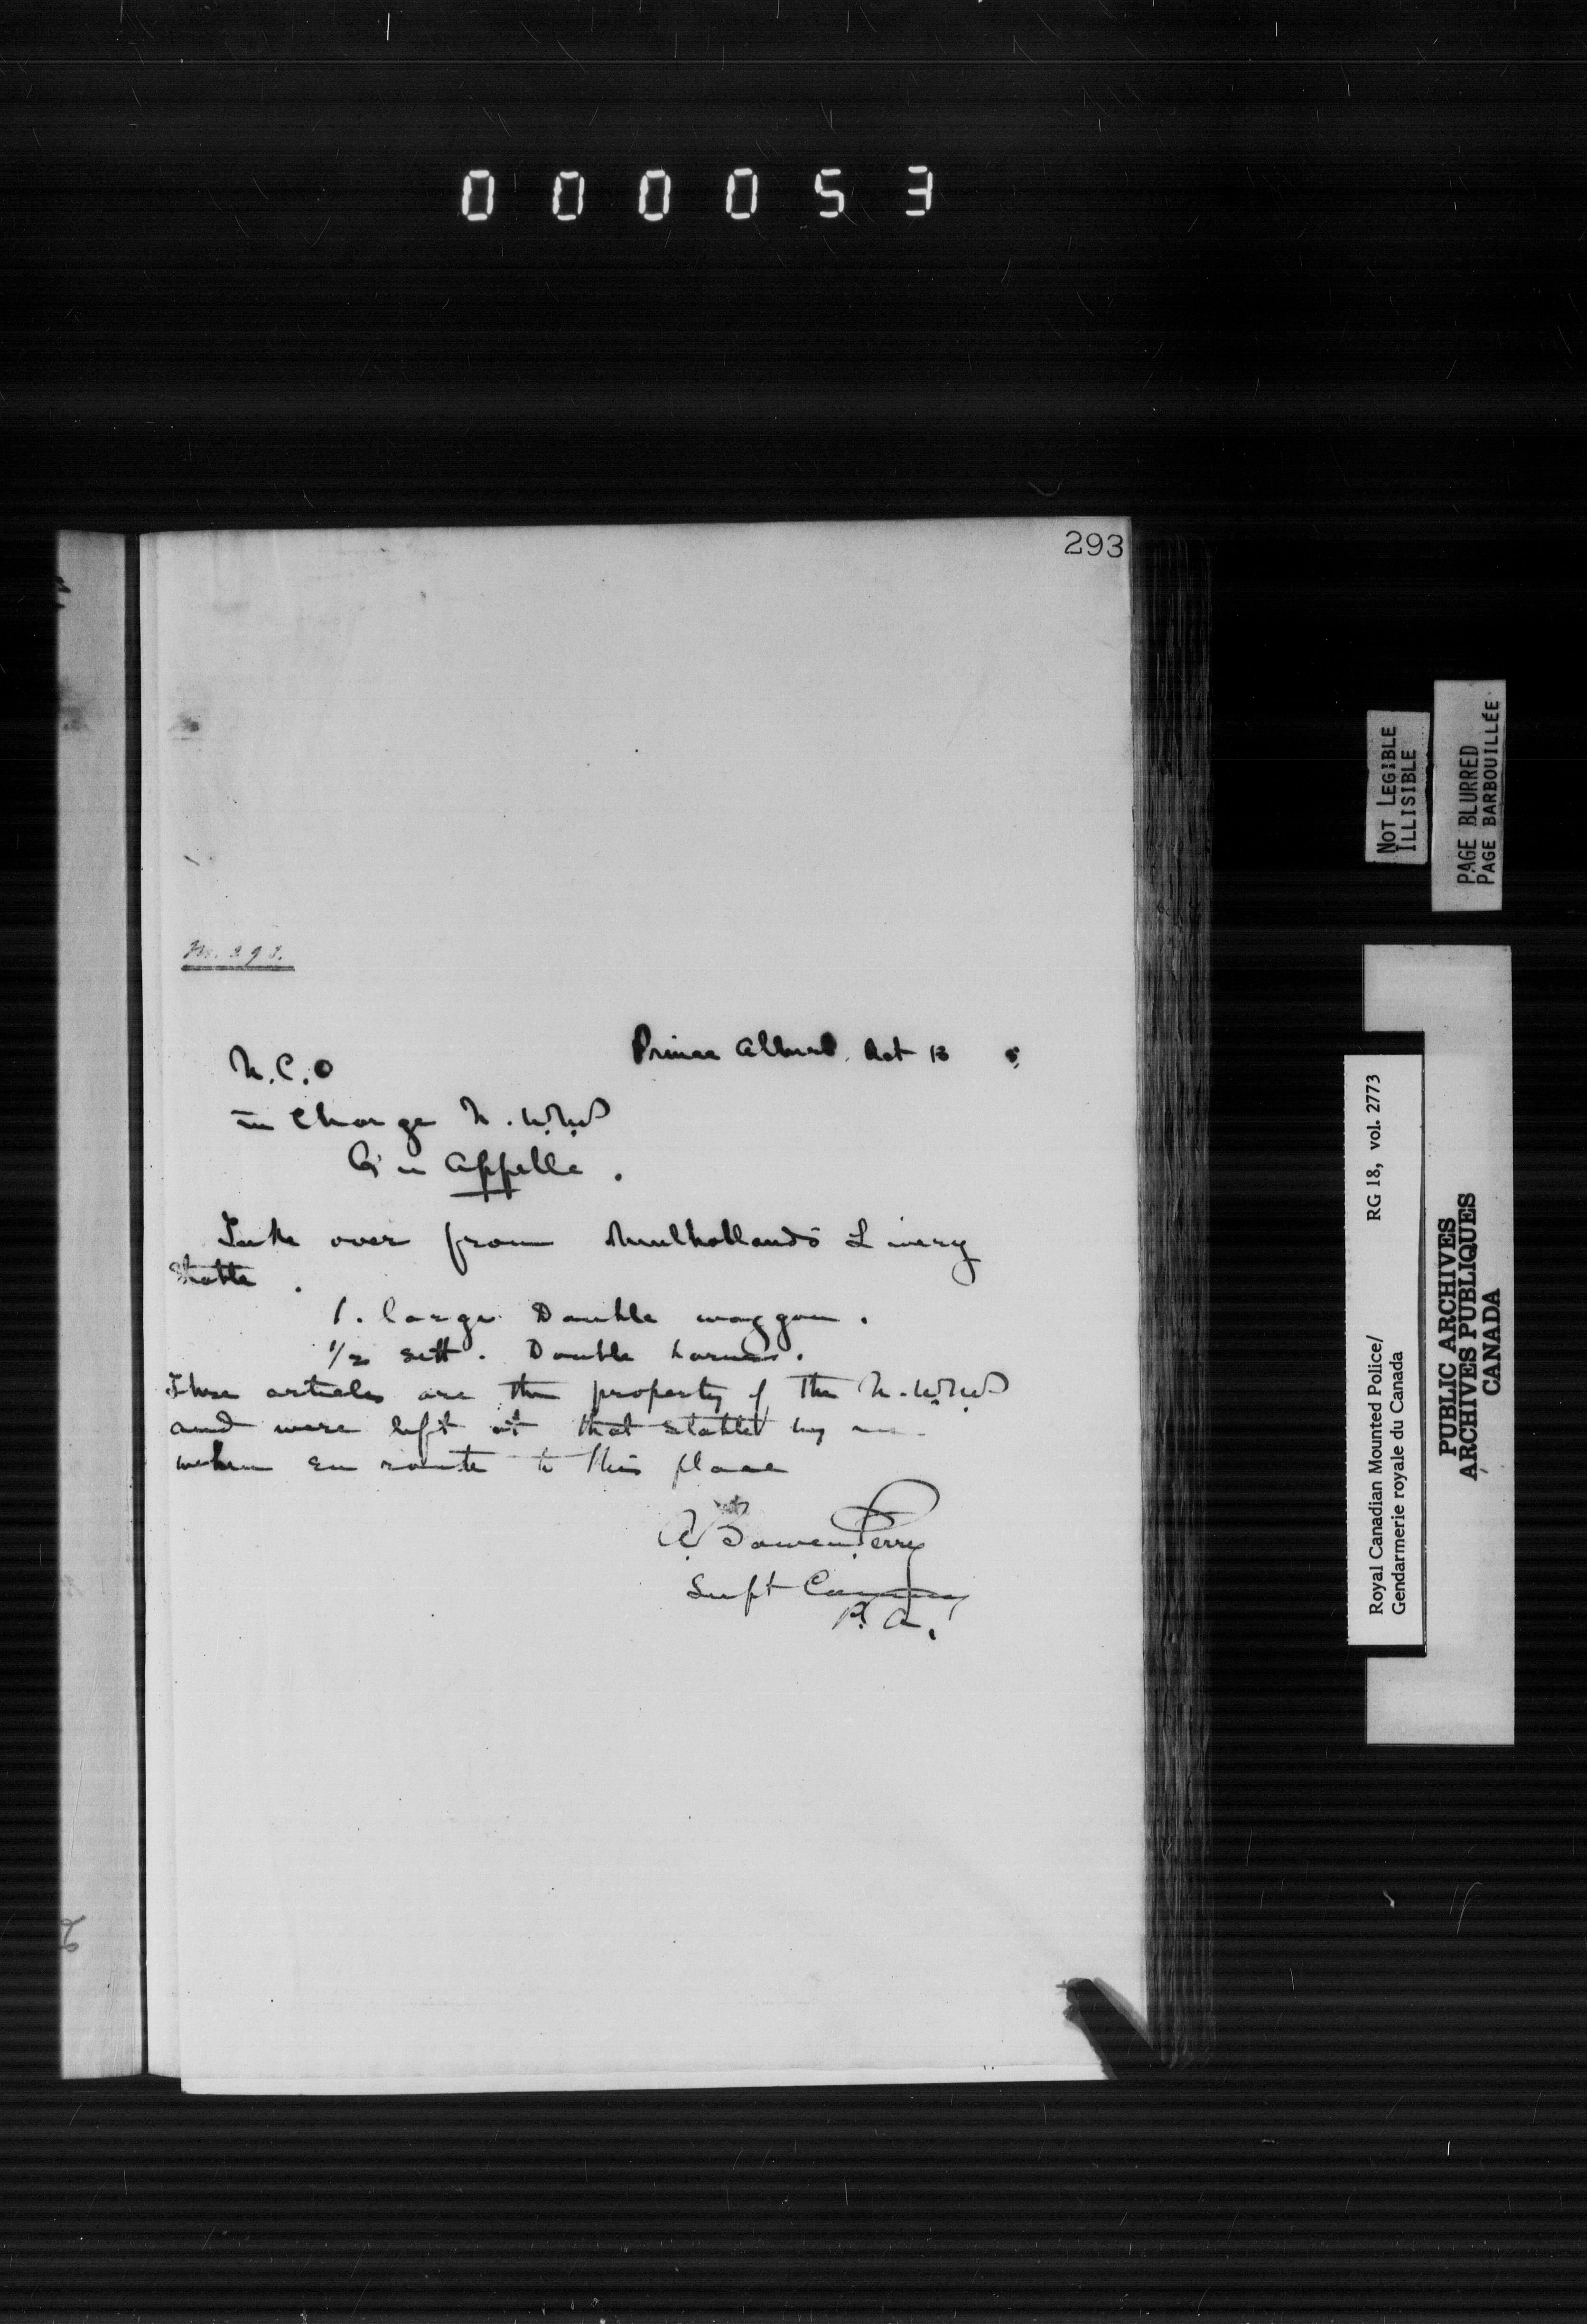 000053
293
No. 293.
Prince Albert. Oct 13 5
N.C.O
in Charge N.W.M.P
Qu'Appelle.
Take over from Mulholland's Livery
Stable.
1. large Double waggon.
1/2 sett. Double harness.
These articles are the property of the N.W.M.P
and were left at that stable by me
when en route to this place
A. Bowen Perry
Supt Comg
P.A.
NOT LEGIBLE
ILLISIBLE
PAGE BLURRED
PAGE BARBOUILLÉE
Royal Canadian Mounted Police/ RG 18, vol. 2773
Gendarmerie royale du Canada
PUBLIC ARCHIVES
ARCHIVES PUBLIQUES
CANADA